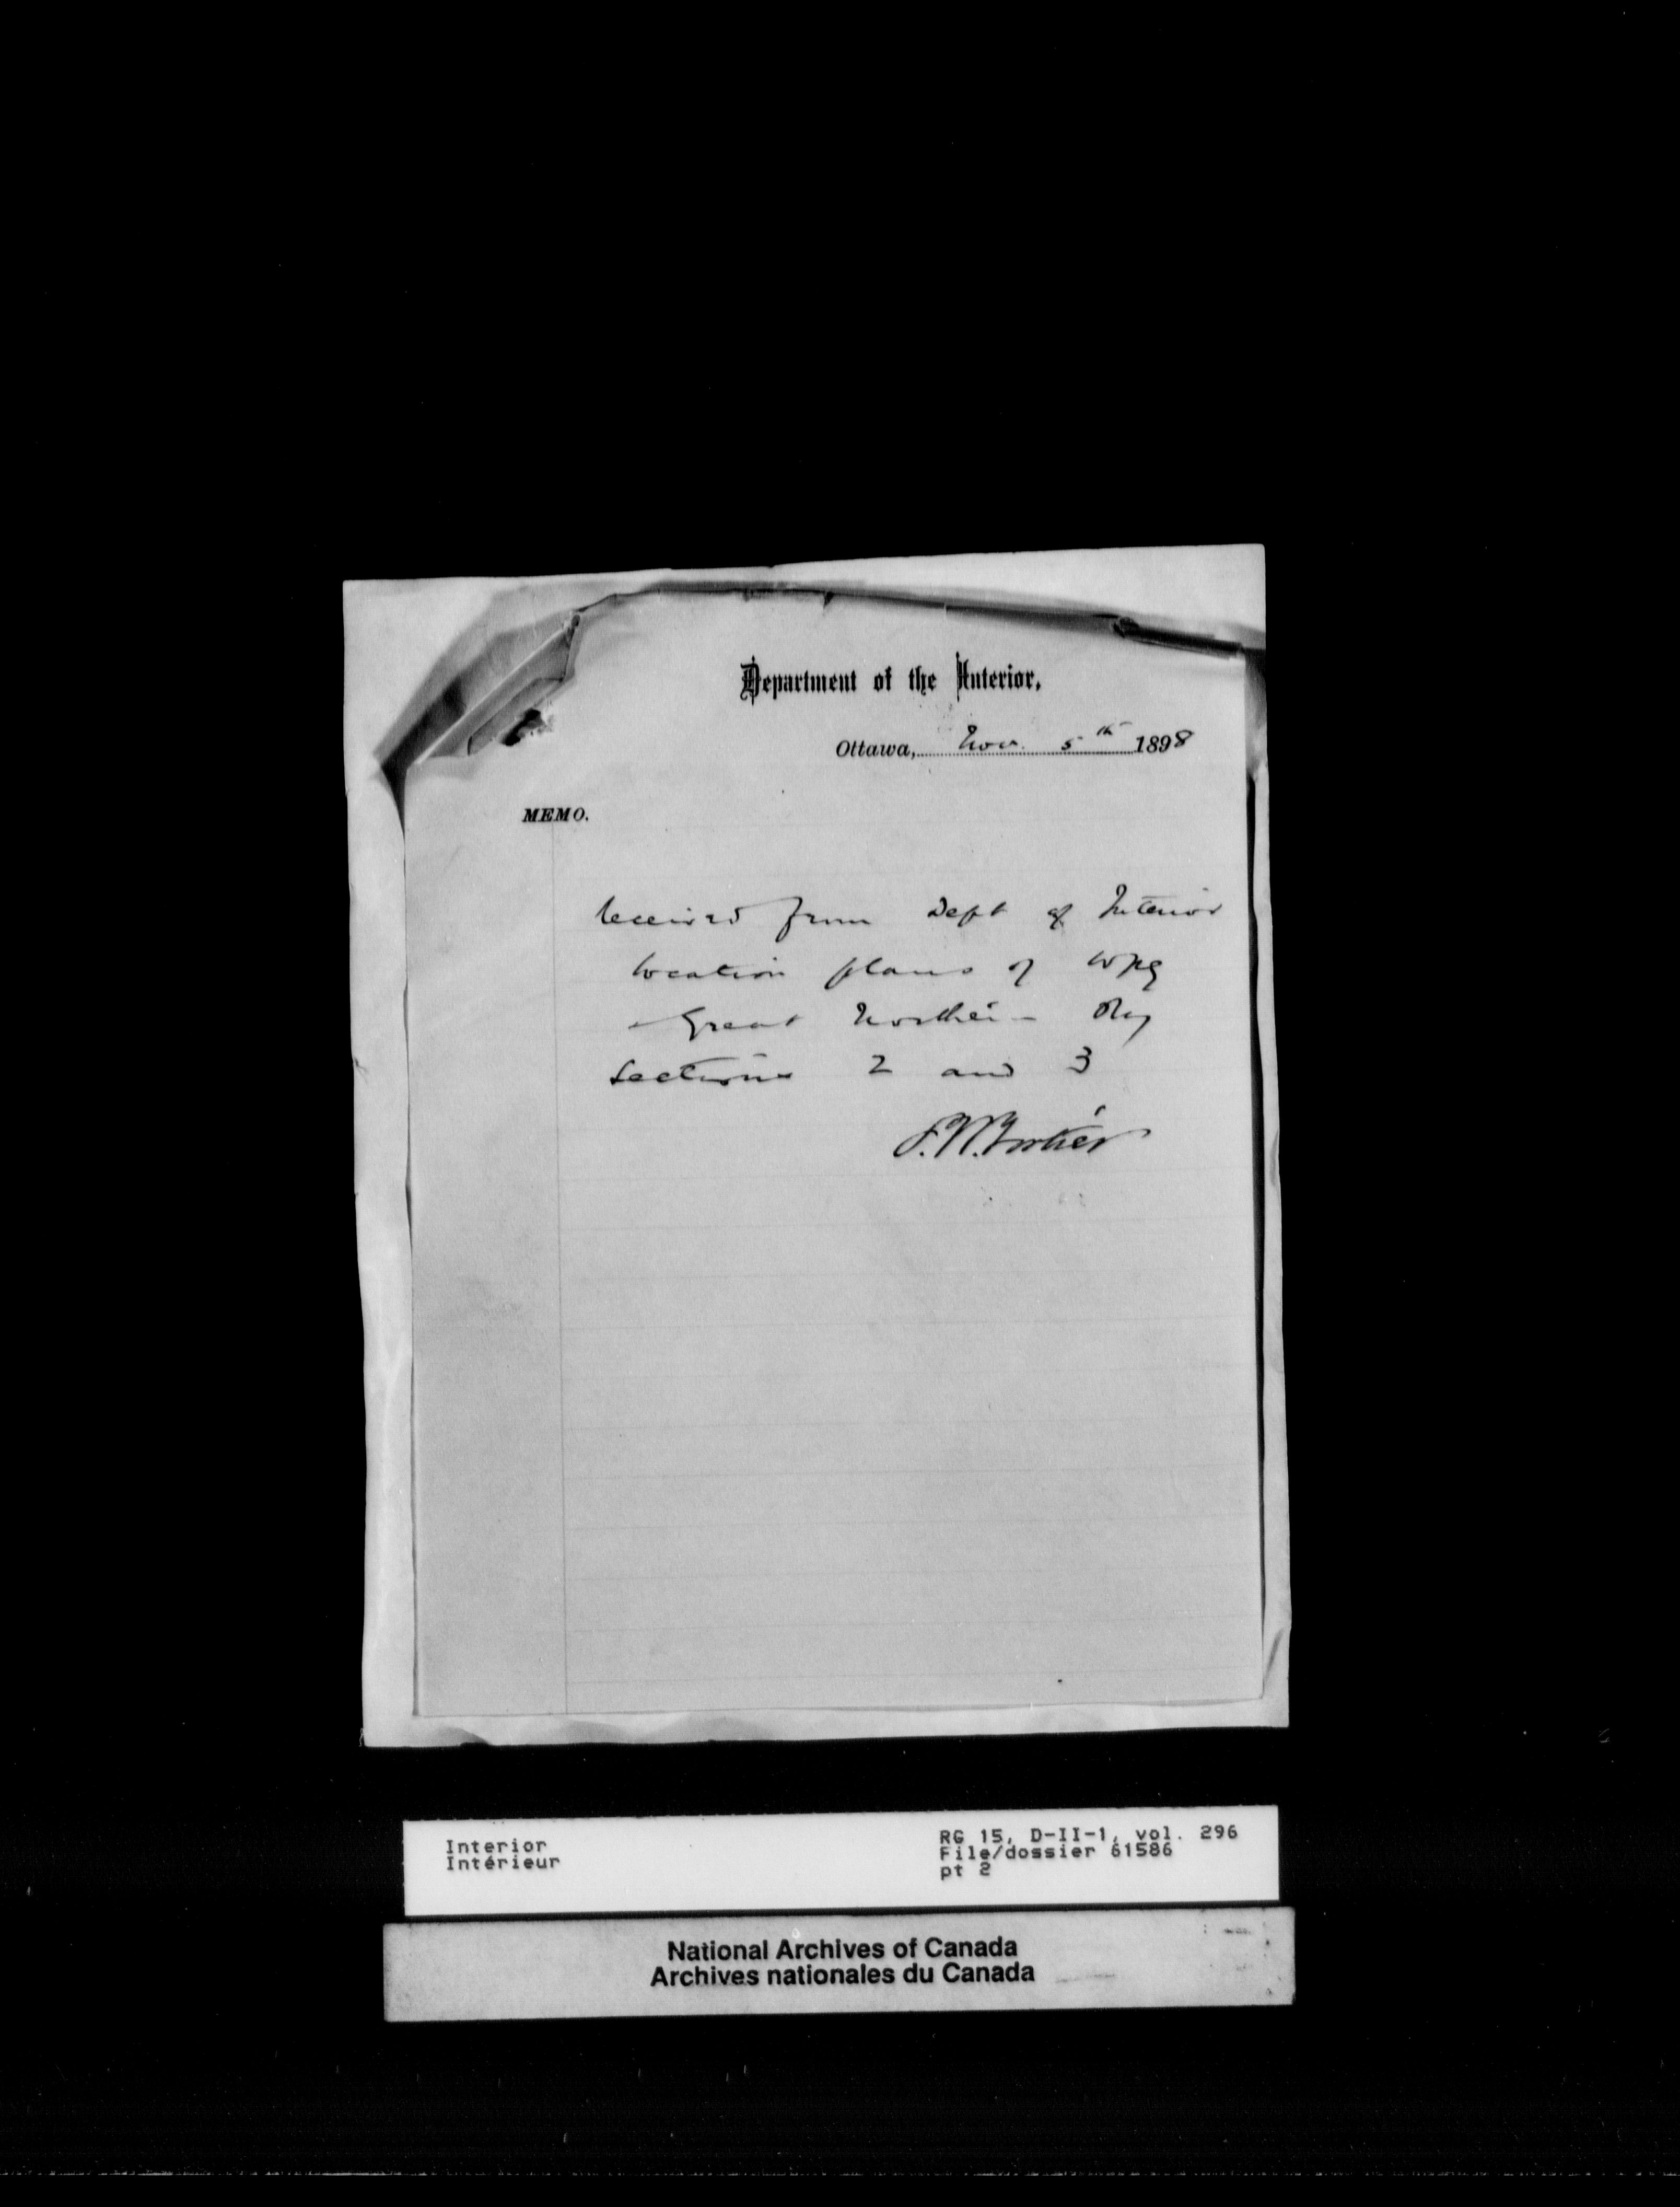 Department of the Interior,
Ottawa, Nov. 5th 1898
MEMO.
Received from Dept of Interior
location plans of Wpg
Great Northern Ry
Sections 2 and 3
Interior
Intérieur
RG 15, D-II-1, vol. 296
File/dossier 61586
pt 2
National Archives of Canada
Archives nationales du Canada